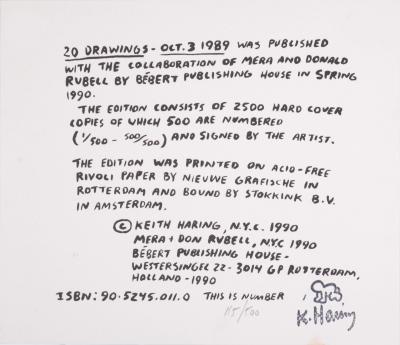 20 DRAWINGS - OCT. 3 1989 WAS PUBLISHED
WITH THE COLLABORATION OF MERA AND DONALD
RUBELL BY BÉBERT PUBLISHING HOUSE IN SPRING
1990.
THE EDITION CONSISTS OF 2500 HARD COVER
COPIES OF WHICH 500 ARE NUMBERED
(1/500 - 500/500) AND SIGNED BY THE ARTIST.
THE EDITION WAS PRINTED ON ACID-FREE
RIVOLI PAPER BY NIEUWE GRAFISCHE IN
ROTTERDAM AND BOUND BY STOKKINK B.V.
IN AMSTERDAM.
© KEITH HARING, N.Y.C. 1990
MERA + DON RUBELL, N.Y.C 1990
BÉBERT PUBLISHING HOUSE -
WESTERSINGEL 22 - 3014 GP ROTTERDAM,
HOLLAND - 1990
ISBN: 90.5245.011.0 THIS IS NUMBER
115/500 K. Haring